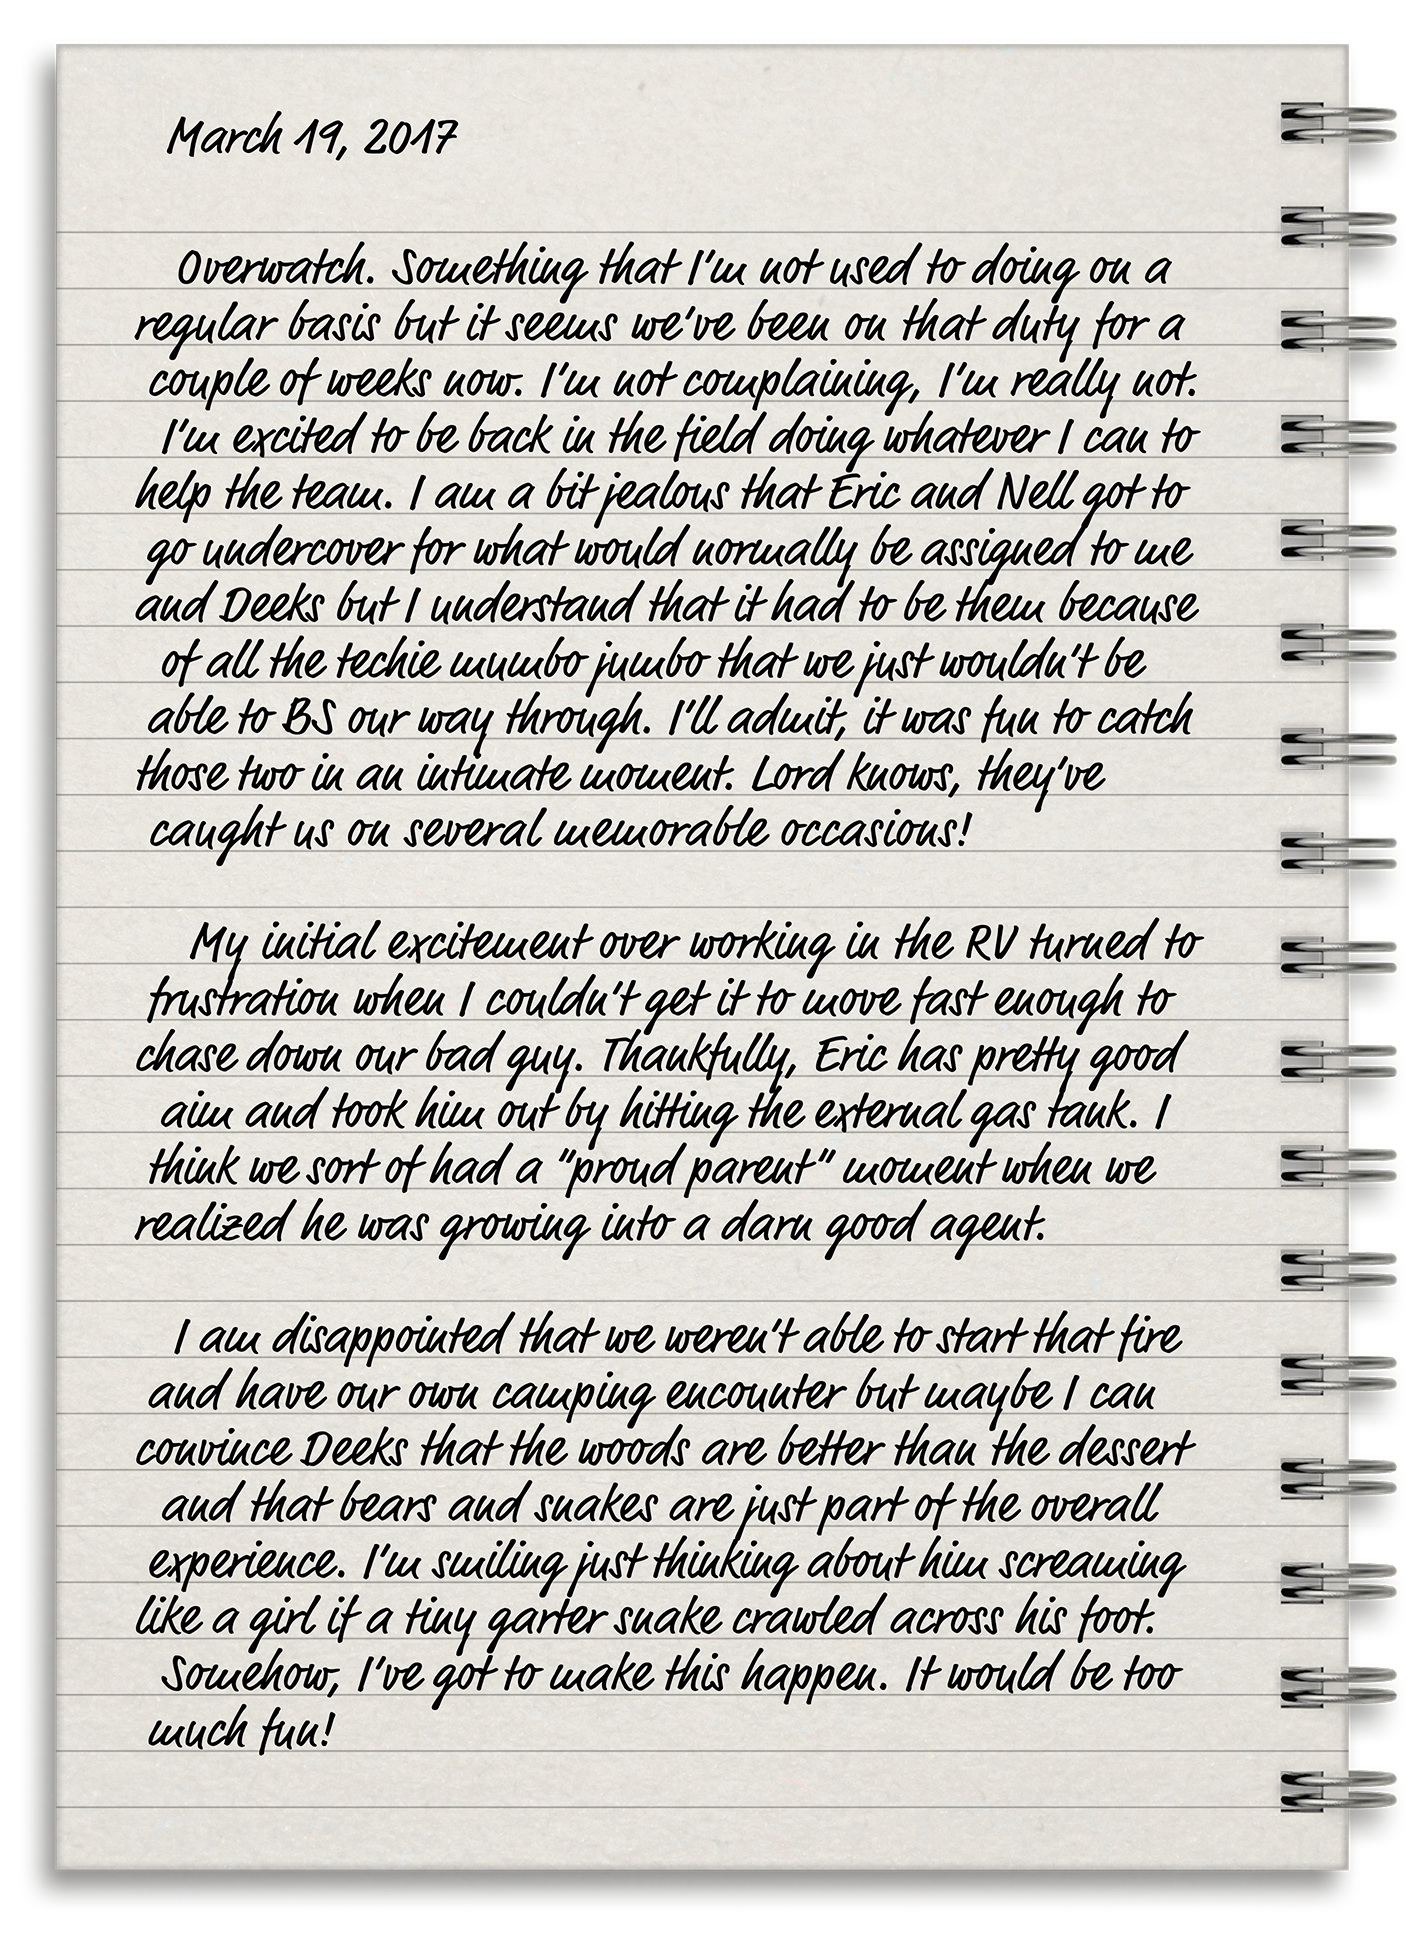 March 19, 2017
Overwatch. Something that I'm not used to doing on a
regular basis but it seems we've been on that duty for a
couple of weeks now. I'm not complaining, I'm really not.
I'm excited to be back in the field doing whatever I can to
help the team. I am a bit jealous that Eric and Nell got to
go undercover for what would normally be assigned to me
and Deeks but I understand that it had to be them because
of all the techie mumbo jumbo that we just wouldn't be
able to BS our way through. I'll admit, it was fun to catch
those two in an intimate moment. Lord knows, they've
caught us on several memorable occasions!
My initial excitement over working in the RV turned to
frustration when I couldn't get it to move fast enough to
chase down our bad guy. Thankfully, Eric has pretty good
aim and took him out by hitting the external gas tank. I
think we sort of had a "proud parent" moment when we
realized he was growing into a darn good agent.
I am disappointed that we weren't able to start that fire
and have our own camping encounter but maybe I can
convince Deeks that the woods are better than the dessert
and that bears and snakes are just part of the overall
experience. I'm smiling just thinking about him screaming
like a girl if a tiny garter snake crawled across his foot.
Somehow, I've got to make this happen. It would be too
much fun!